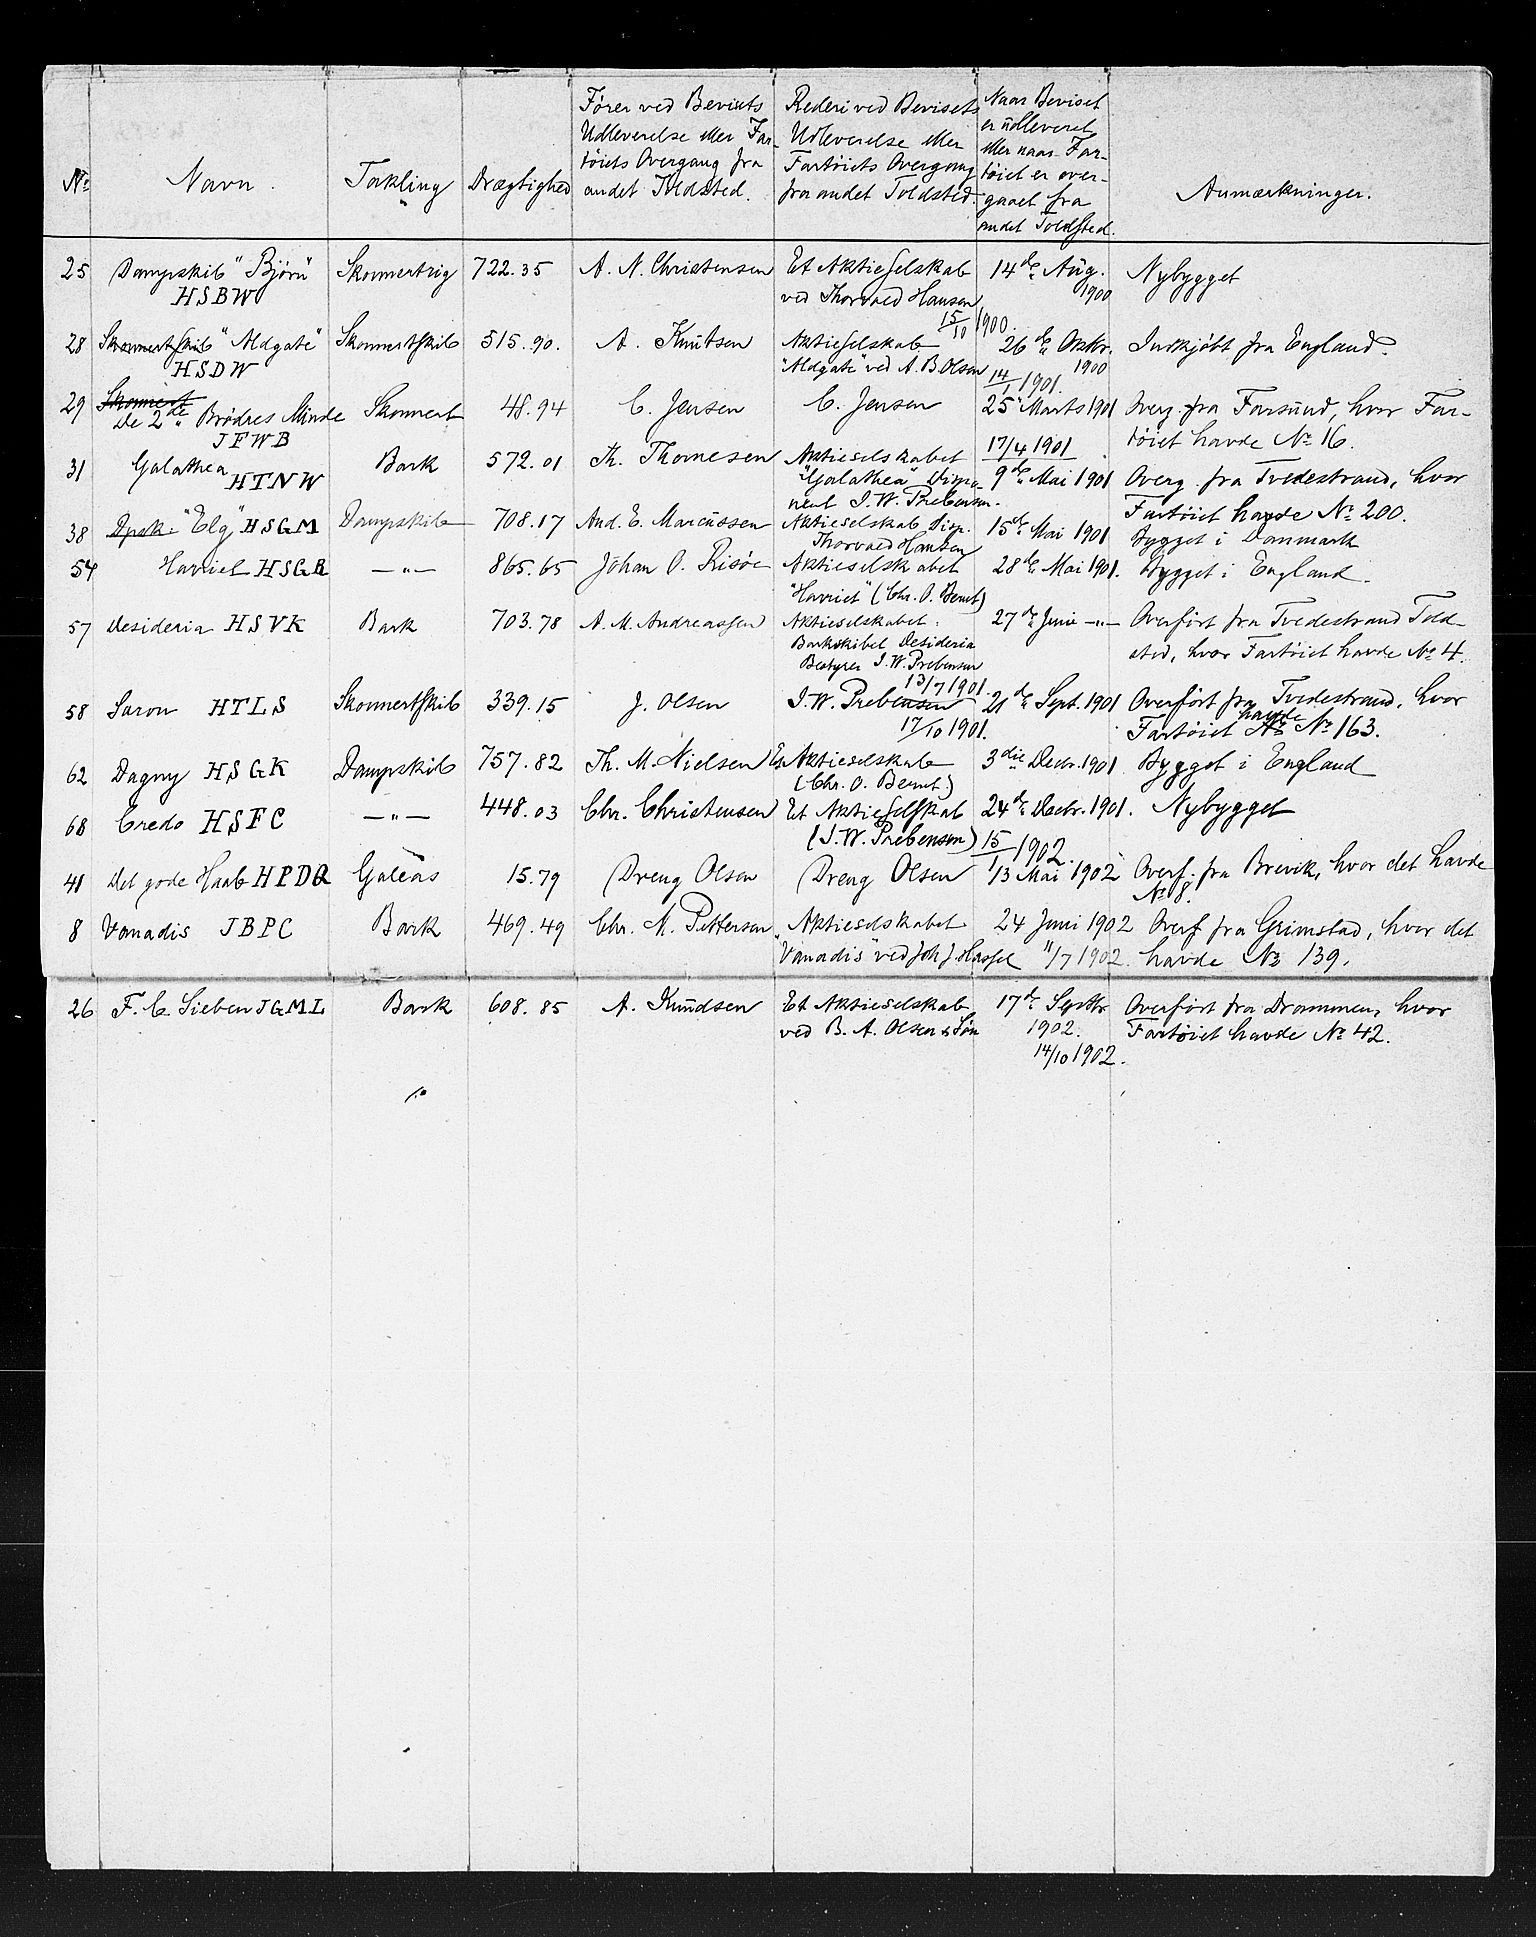 No. Navn. Takling Drægtighed Fører ved Bevisets Udleverelse eller Fartöiets Overgang fra andet Toldsted. Rederi ved Bevisets Udleverelse eller Fartöiets Overgang fra andet Toldsted. Naar Beviset er udleveret eller naar Fartöiet er overgaaet fra andet Toldsted. Anmærkninger.
25 Dampskib "Björn" Skonnertrig 722.35 A. N. Christensen Et Aktieselskab 14de Aug. Nybygget
HSBW ved Thorvald Hansen 1900
15/10 1900.
28 Skonnertskib "Aldgate" Skonnertskib 515.90. A. Knutsen Aktieselskab 26de Oktbr. Indkjöbt fra England.
HSDW "Aldgate" ved A. B. Olsen 1900
14/1 1901.
29 Skonnert
De 2de Brödres Minde Skonnert 48.94 C. Jensen C. Jensen 25 Marts 1901 Overg. fra Farsund, hvor Far-
JFWB 17/4 1901 töiet havde No. 16.
31 Galathea Bark 572.01 Th. Thomesen Aktieselskabet
HTNW "Galathea" Dispo- 9de Mai 1901 Overg. fra Tvedestrand, hvor
nent J. W. Prebensen. Fartöiet havde No. 200.
38 Dpsk. "Elg" HSGM Dampskib 708.17 And. E. Marcussen Aktieselskab Disp. 15de Mai 1901 Bygget i Danmark
Thorvald Hansen
54 Harriet HSGR —"— 865.65 Johan O. Risöe Aktieselskabet 28de Mai 1901. Bygget i England.
"Harriet" (Chr. O. Bernt)
57 Desideria HSVK Bark 703.78 A. M. Andreassen Aktieselskabet 27de Juni —"— Overfört fra Tvedestrand Told-
Barkskibet Desideria sted, hvor Fartöiet havde No. 4.
Bestyrer J. W. Prebensen
13/7 1901.
58 Saron HTLS Skonnertskib 339.15 J. Olsen J. W. Prebensen 21de Sept. 1901 Overfört fra Tvedestrand, hvor
17/10 1901. Fartöiet havde No. 163.
62 Dagny HSGK Dampskib 757.82 Th. M. Nielsen Et Aktieselskab 3die Decbr. 1901 Bygget i England
(Chr. O. Bernt.)
68 Credo HSFC —"— 448.03 Chr. Christensen Et Aktieselskab 24de Decbr. 1901. Nybygget
(J. W. Prebensen) 15/1 1902.
41 Det gode Haab HPDQ Galeas 15.79 Dreng Olsen Dreng Olsen 13 Mai 1902 Overf. fra Brevik, hvor det havde
No. 8.
8 Vanadis JBPC Bark 469.49 Chr. M. Pettersen Aktieselskabet 24 Juni 1902 Overf fra Grimstad, hvor det
"Vanadis" ved Joh J. Hassel 11/7 1902. havde No 139.
26 F. C. Sieben JGML Bark 608.85 A. Knudsen Et Aktieselskab 17de Septbr Overfört fra Drammen, hvor
ved B. A. Olsen & Sön 1902. Fartöiet havde No. 42.
14/10 1902.